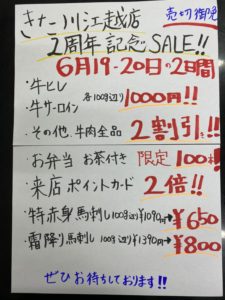 きたー川江越店 売切御免
2周年記念SALE!!
6月19-20日の2日間
・牛ヒレ
・牛サーロイン 各100g辺り 1000円!!
・その他、牛肉全品 2割引き!!
お弁当 お茶付き 限定100本!
・来店ポイントカード 2倍!!
・特赤身馬刺し 100g辺り¥1090が→¥650
・霜降り馬刺し 100g辺り¥1390が→¥800
ぜひお待ちしております!!